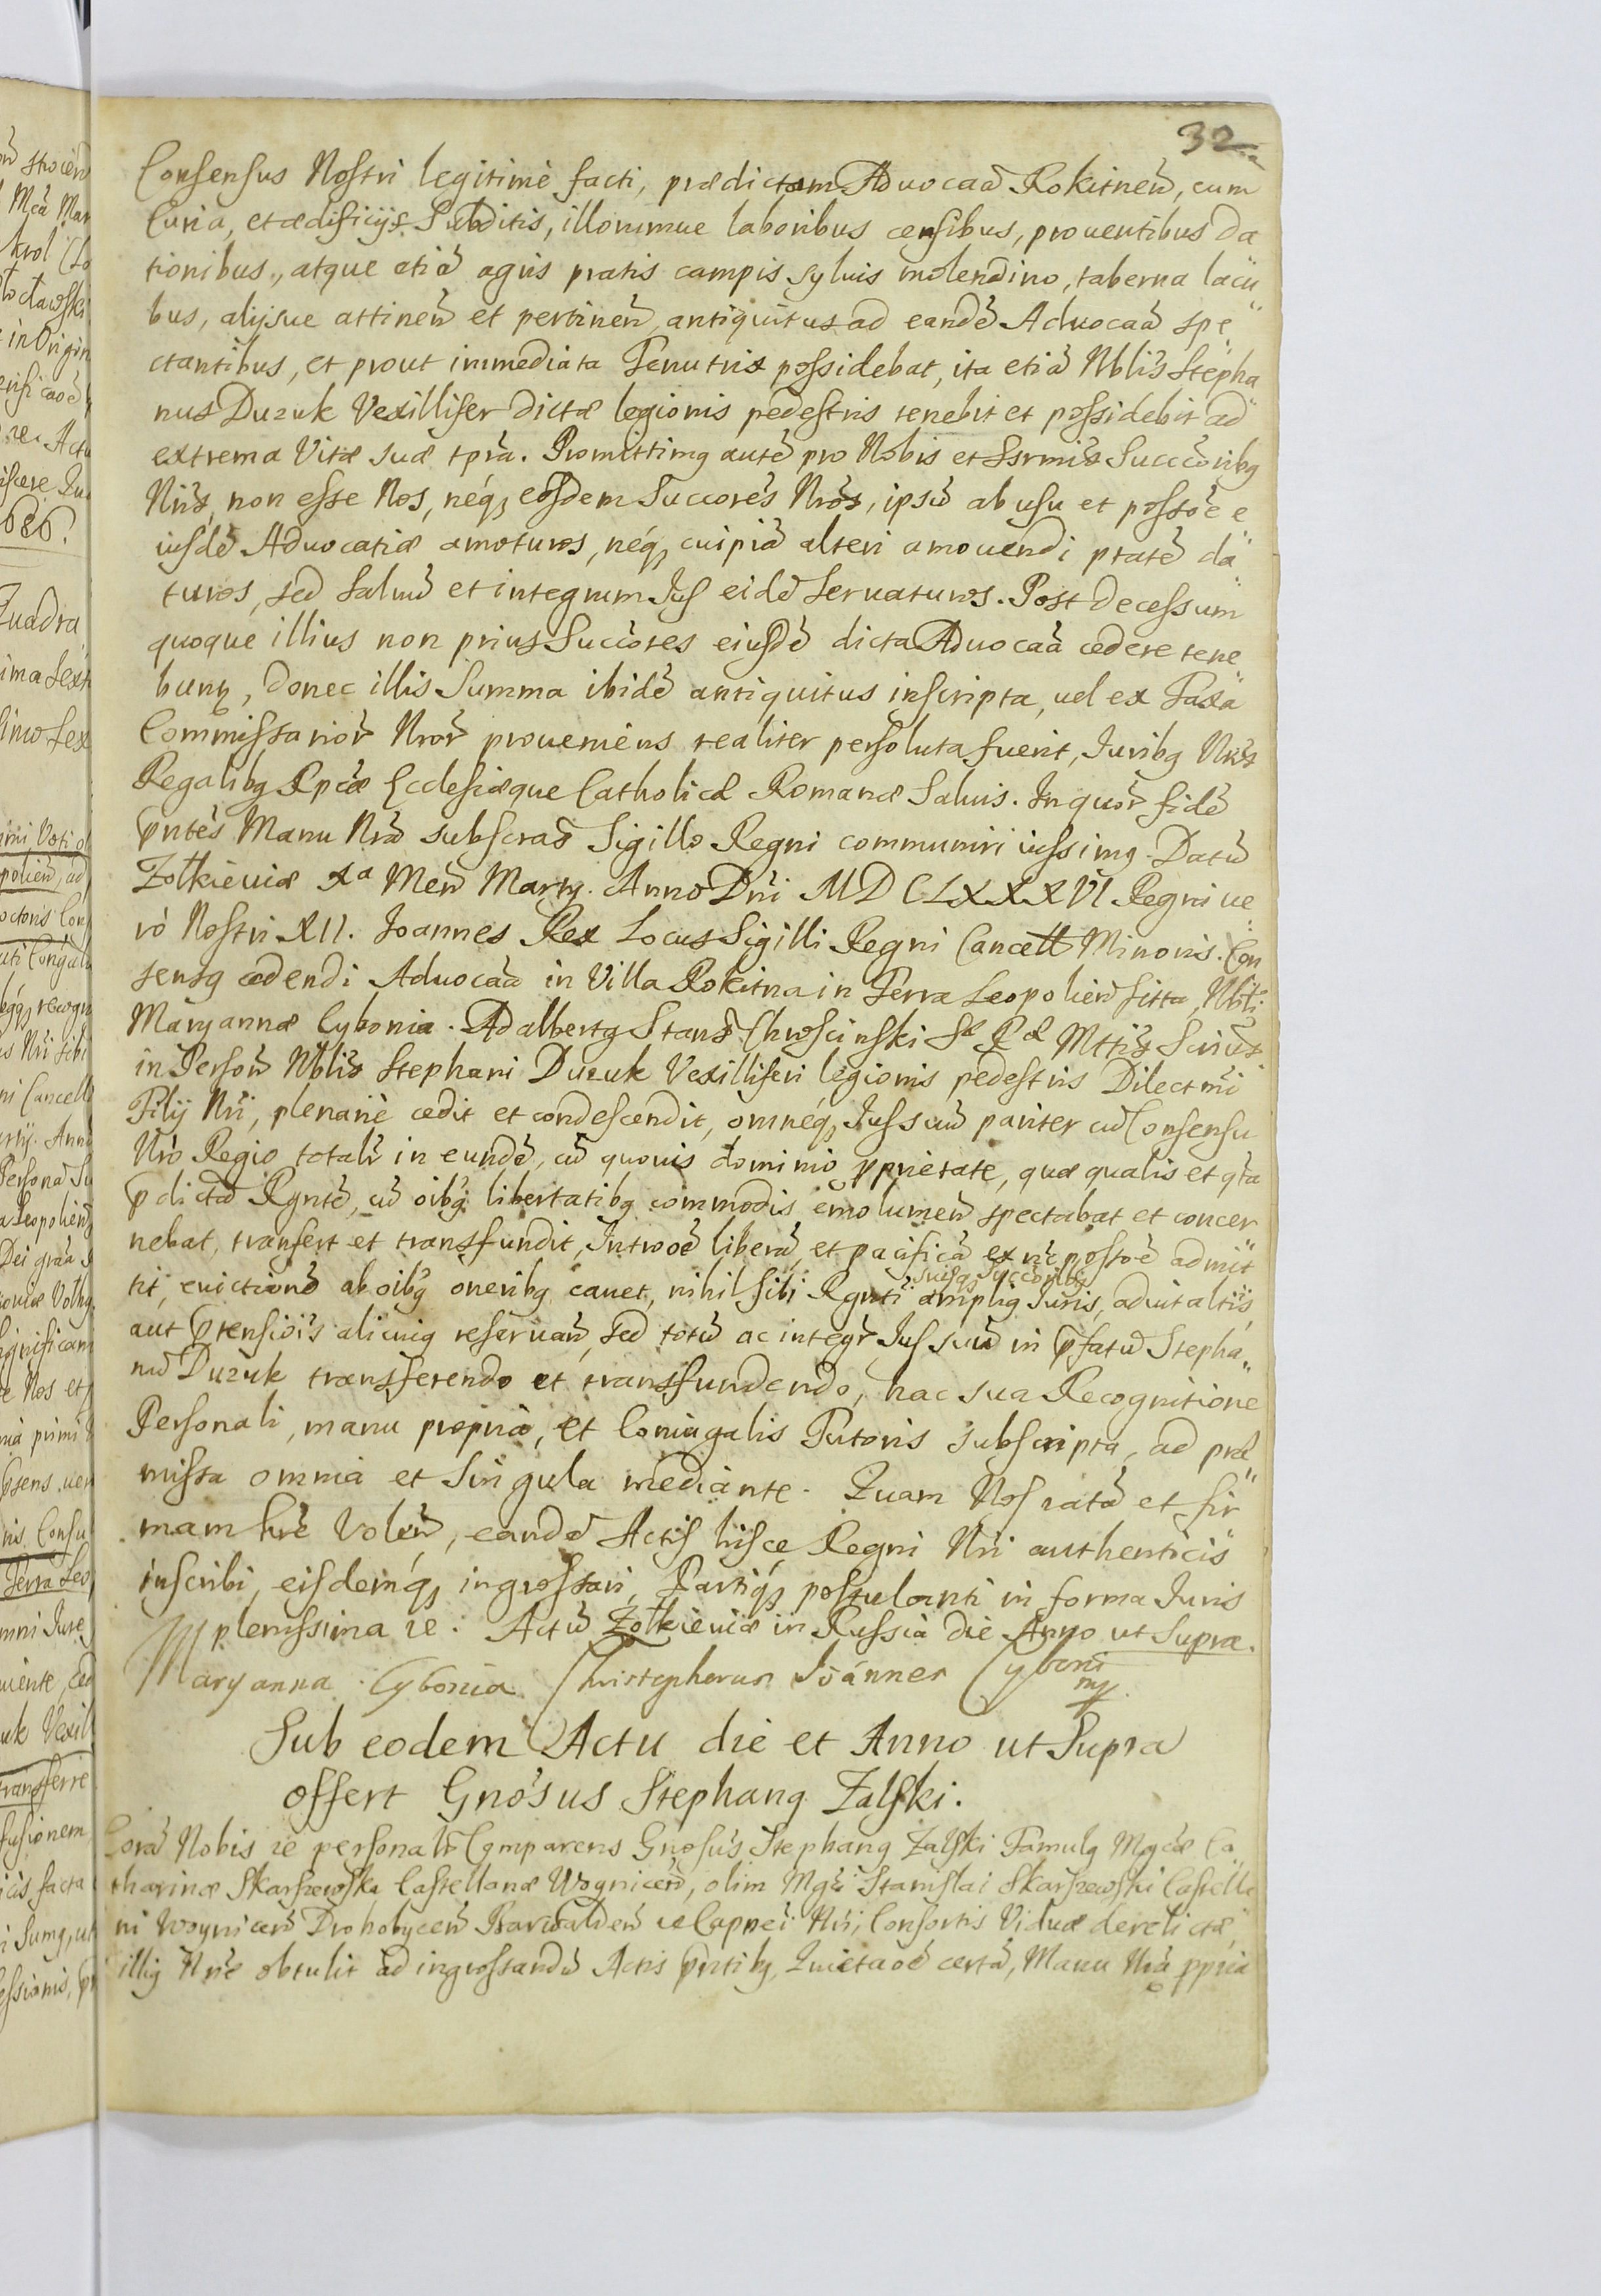 32
Consensus Nostri legitimè facti, prædictam Aduocaã Rokitneñ, cum
Curia, et ædificijs Subditis, illorumue laboribus censibus, prouentibus da
tionibus, atque etiã agris pratis campis syluis molendino, taberna lacu
bus, alijsue attineñ et pertineñ, antiquitus ad eandẽ Aduocaã spe
ctantibus, et prout immediata Tenutrix possidebat, ita etiã Nblis Stepha
nus Duzuk Vexillifer dictæ legionis pedestris tenebit et possidebit ad
extrema Vitæ suæ tpra. Promittimg autẽ pro Nobis et Ssrmis Succcoribg
Nris, non esse Nos, néq, eosdem Succores Nros, ipsũ ab usu et possoẽ e
iusdẽ Aduocatiæ amoturos, néq, cuipiã alteri amouendi ptatẽ da
turos, sed saluũ et integrum Jus eidẽ seruaturos. Post decessum
quoque illius non prius Succores eiusdẽ dicta Aduocaã cedere tene
bunt, donec illis Summa ibidẽ antiquitus inscripta, uel ex Taxa
Commissarior Nror proueniens realiter persoluta fuerit, Juribg Nris
Regalibg Rpcæ Ecclesiæque Catholicæ Romanæ Saluis. In quor fidẽ
pntes Manu Nrã subscras Sigillo Regni communiri iussimg. Datũ
Zołkieuiæ Xa Meñ Marty. Anno Dni MDCLXXXVI Regni ue
rò Nostri XII. Joannes Rex Locus Sigilli Regni Cancell Minoris. Con
sensg cedendi Aduocaã in Villa Rokitna in Terra Leopolieñ sitta, Nbli
Maryannæ Cybonia. Adalbertg Stans Chroscinski Sæ Ræ Mttis Scrius
in Persoñ Nblis Stephani Duzuk Vexilliferi legionis pedestris Dilectmi
Filij Nri, plenariè cedit et condescendit, omnéq, Jus suũ pariter cũ Consensu
Nro Regio totalr in eundẽ, cũ quouis dominio pprietate, quæ qualis et qta
pdictã Rgntẽ, cũ oibg libertatibg commodis emolumeñ spectabat et concer
nebat, transfert et transfundit, Introoẽ liberã et pacificã ex nc possoẽ admit
suisq, Succoribg
tit, euictionẽ ab oibg oneribg cauet, nihil sibi Rgnti amplig Juris, aduitaltis,
aut ptensiois alicuig reseruañ, sed totũ ac integr Jus suũ in pfatũ Stepha
nũ Duzuk transferendo et transfundendo, hac sua Recognitione
Personali, manu propria, et Coniugalis Tutoris subscripta, ad præ
missa omnia et singula mediante. Quam Nos ratã et fir
mam hrẽ Voleñ, eandẽ Actis hisce Regni Nri authenticis
inscribi, eisdemq, ingrossari, Partiq, postulanti in forma Juris
plenissima ie. Actũ Zołkieuiæ in Russia die Anno ut Supra.
Maryanna Cybonia Christophorus Joánnes Cyboni mp
Sub eodem Actu die et Anno ut Supra
offert Gnosus Stephang Zalski.
Corã Nobis ie personalr Comparens Gnosus Stephang Zalski Famulg Mgcæ Ca
tharinæ Skarszewska Castellanæ Woyniceñ, olim Mgci Stanislai Skarszewski Castella
ni Woyniceñ Drohobyceñ Barwaldeñ ie Cappnei Nri, Consortis Viduæ derelictæ,
illig Nrẽ obtulit ad ingrossandũ Actis pntibg, Quietaoẽ certã, Manu Nrã ppria